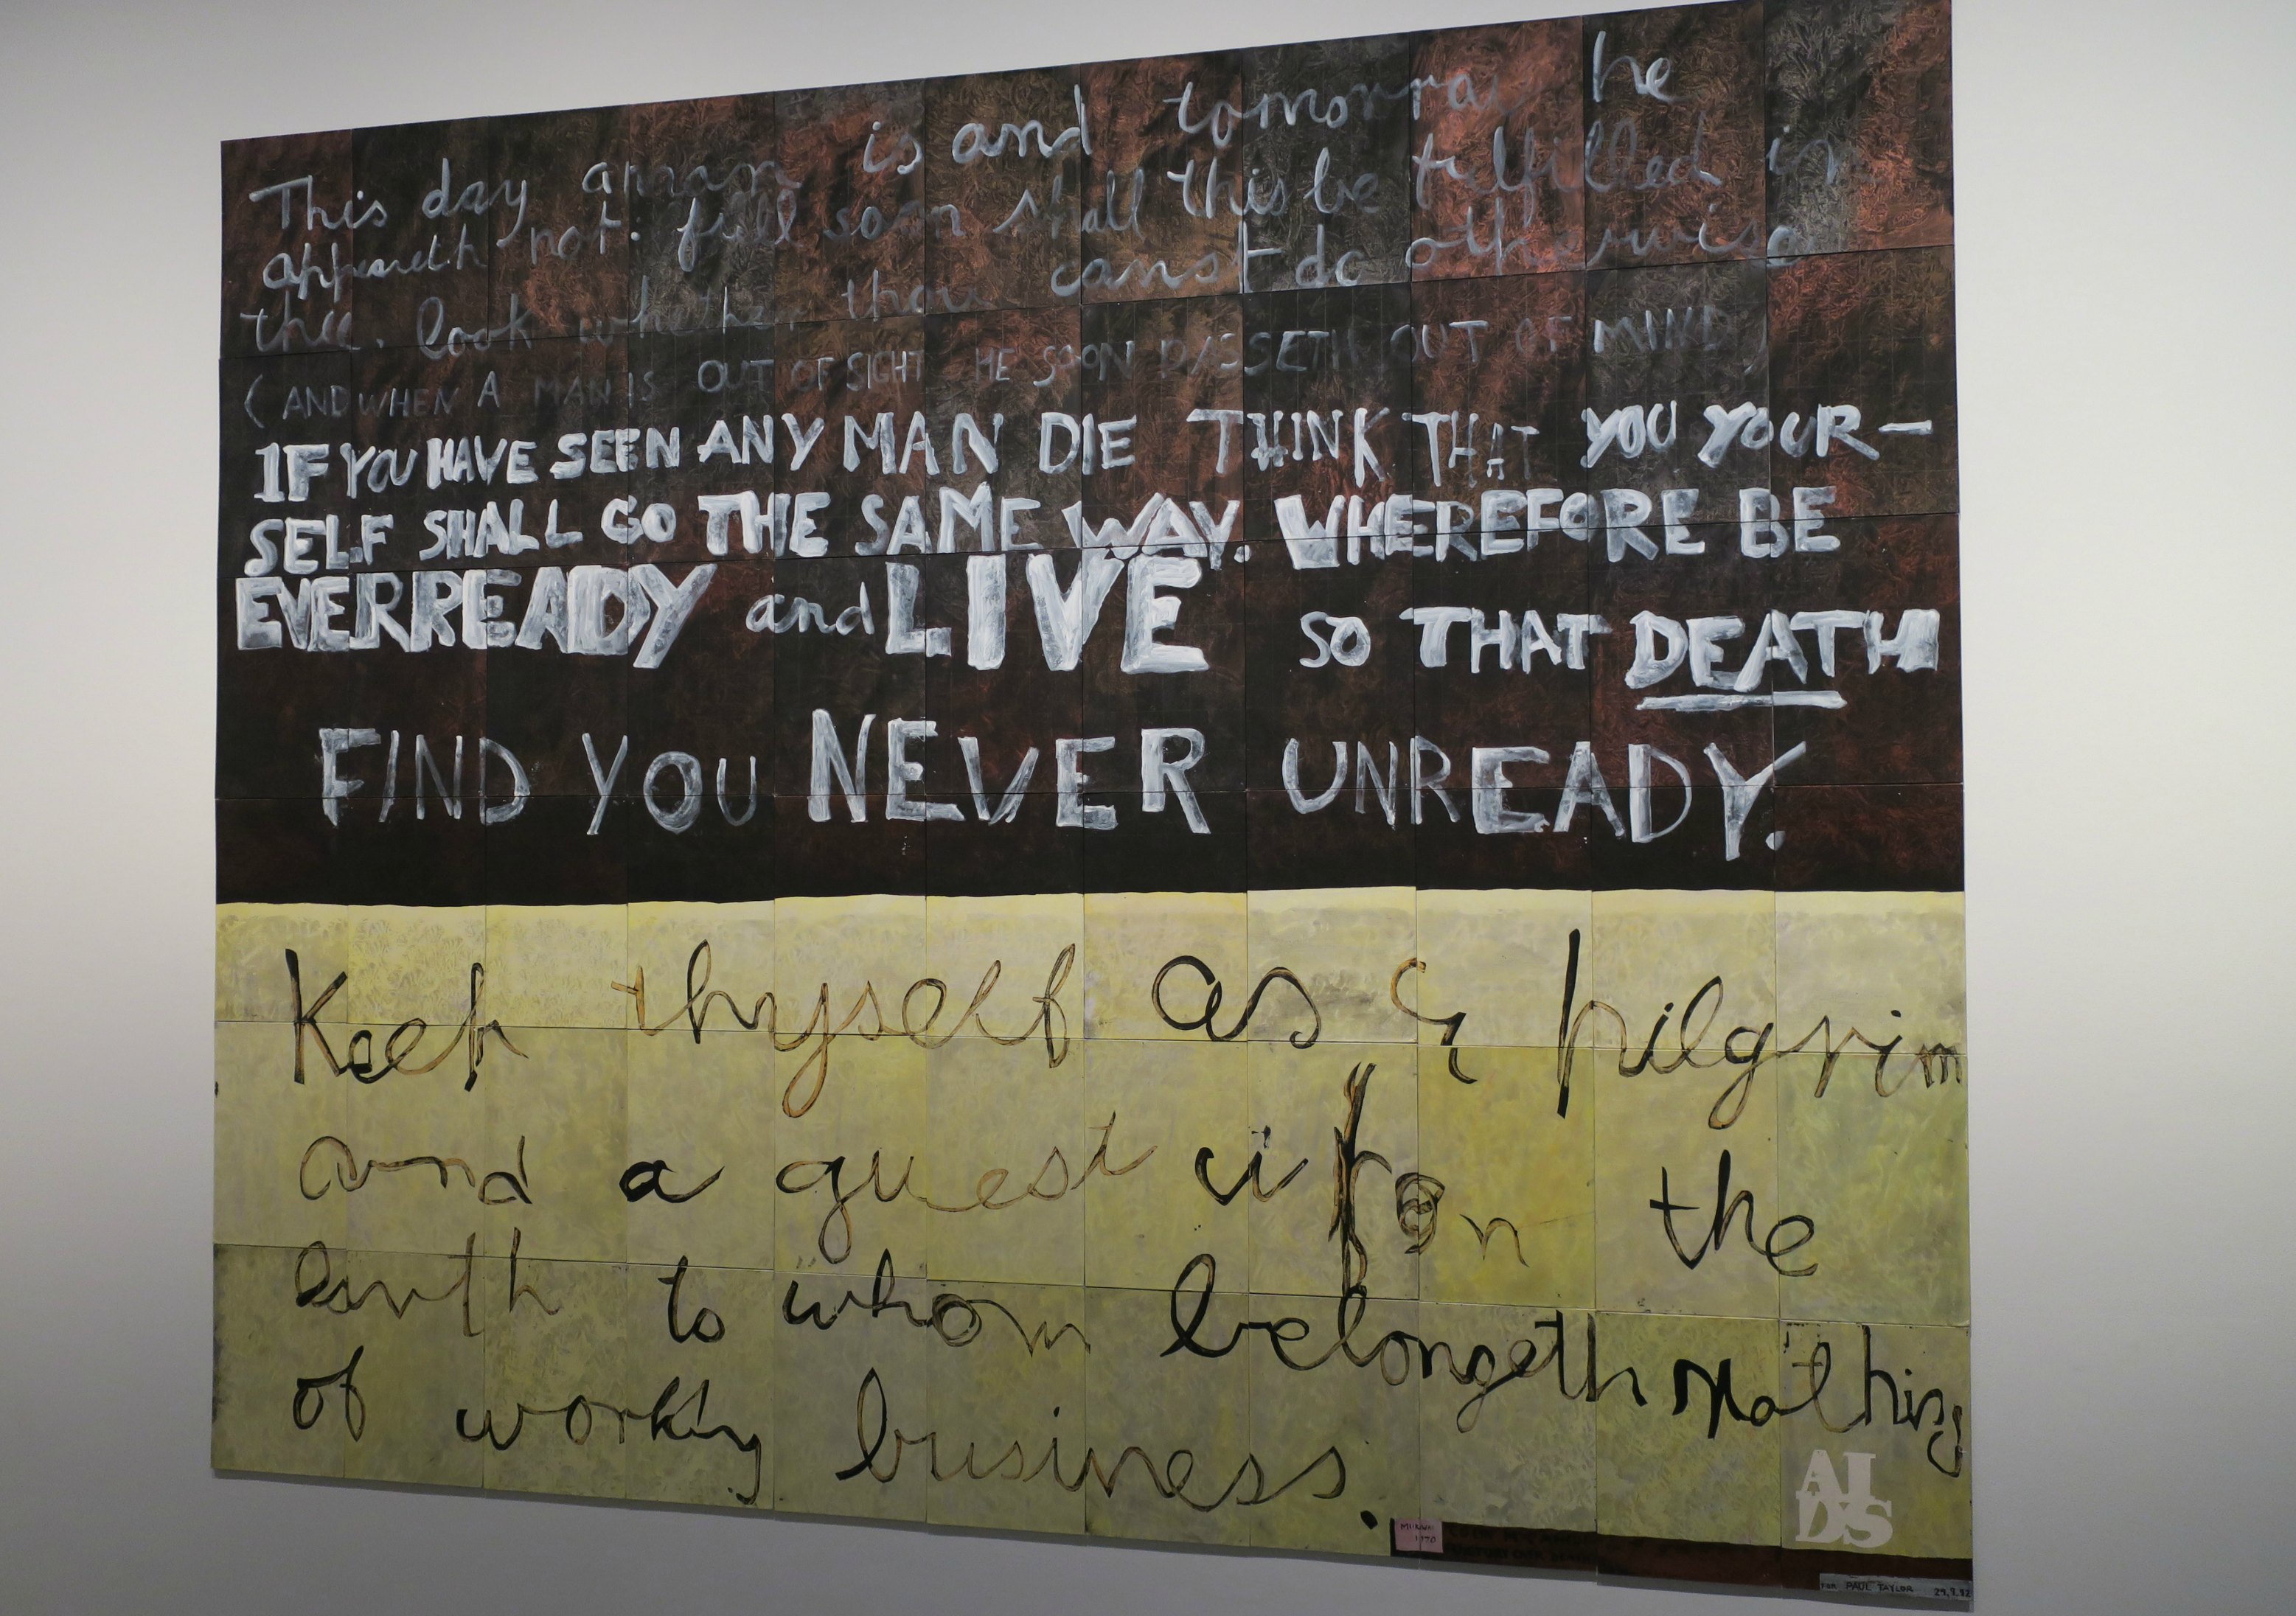 This day a man is and tomorrow he
appeareth not: full soon shall this be fulfilled in
thee. look whether thou canst do otherwise
(AND WHEN A MAN IS OUT OF SIGHT HE SOON PASSETH OUT OF MIND)
IF YOU HAVE SEEN ANY MAN DIE THINK THAT YOU YOUR-
SELF SHALL GO THE SAME WAY. WHEREFORE BE
EVERREADY and LIVE SO THAT DEATH
FIND YOU NEVER UNREADY.
Keep thyself as a pilgrim
and a guest upon the
earth to whom belongeth nothing
of worldly business.
AI
DS
FOR PAUL TAYLOR